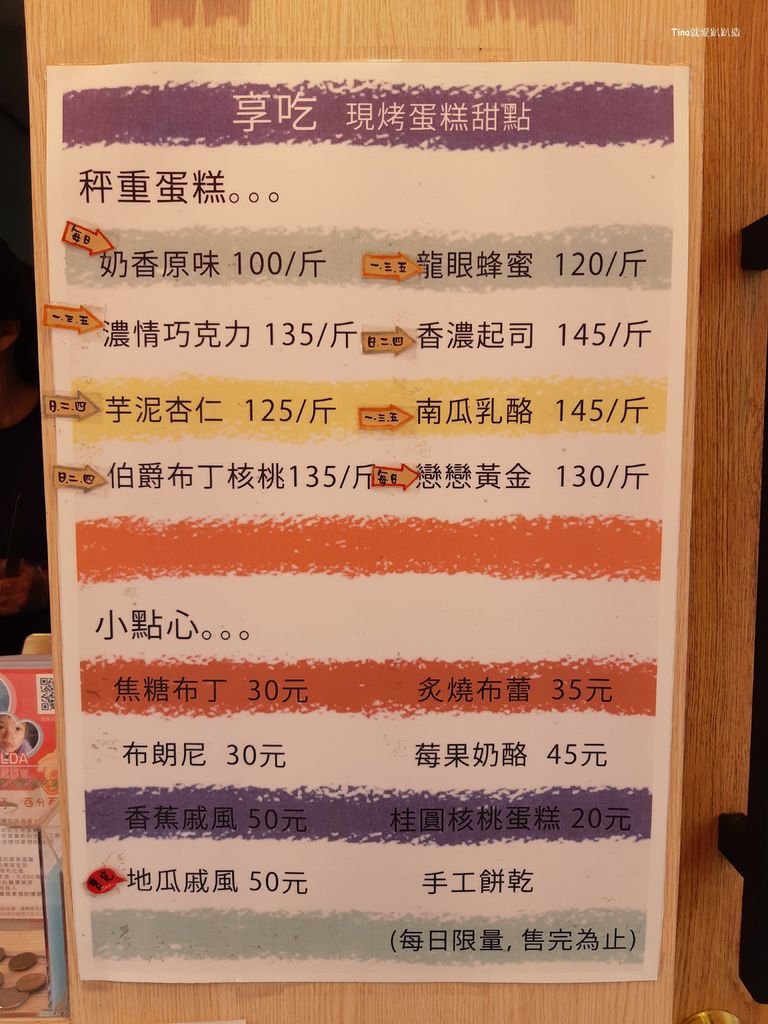 Tina就愛趴趴造
享吃 現烤蛋糕甜點
秤重蛋糕。。。
每日 奶香原味 100/斤 一.三.五 龍眼蜂蜜 120/斤
一.三.五 濃情巧克力 135/斤 日.二.四 香濃起司 145/斤
日.二.四 芋泥杏仁 125/斤 一.三.五 南瓜乳酪 145/斤
日.二.四 伯爵布丁核桃135/斤 每日 戀戀黃金 130/斤
小點心。。。
焦糖布丁 30元 炙燒布蕾 35元
布朗尼 30元 莓果奶酪 45元
香蕉戚風 50元 桂圓核桃蛋糕 20元
地瓜戚風 50元 手工餅乾
(每日限量, 售完為止)
LDA